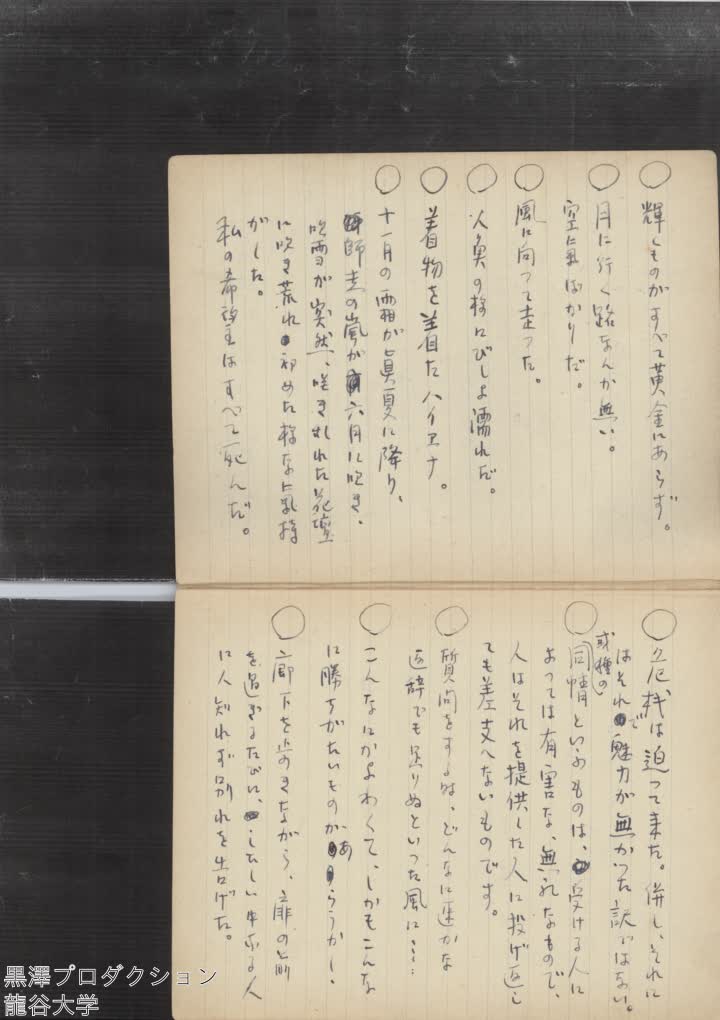 輝くものがすべて黄金にあらず。
月に行く路なんか無い。
空気ばかりだ。
風に向って走った。
人魚の様にびしょ濡れだ。
着物を着たハイエナ。
十一月の霜が真夏に降り、
師走の嵐が六月に吹き、
吹雪が突然、咲き乱れた花壇
に吹き荒れ初めた様な気持
がした。
私の希望はすべて死んだ。
危機は迫って来た。併し、それに
はそれで魅力が無かった訳ではない。
或種の
同情といふものは、受ける人に
よっては有害な、無礼なもので、
人はそれを提供した人に投げ返し
ても差支へないものです。
質問をするは、どんなに速かな
返辞でも足りぬといった風に……
こんなにかよわくて、しかもこんな
に勝ちがたいものがあらうかし、
廊下を歩きながら、扉の前
を過ぎるたびに、いとしい中なる人
に人知れず別れを告げた。
黒澤プロダクション
龍谷大学